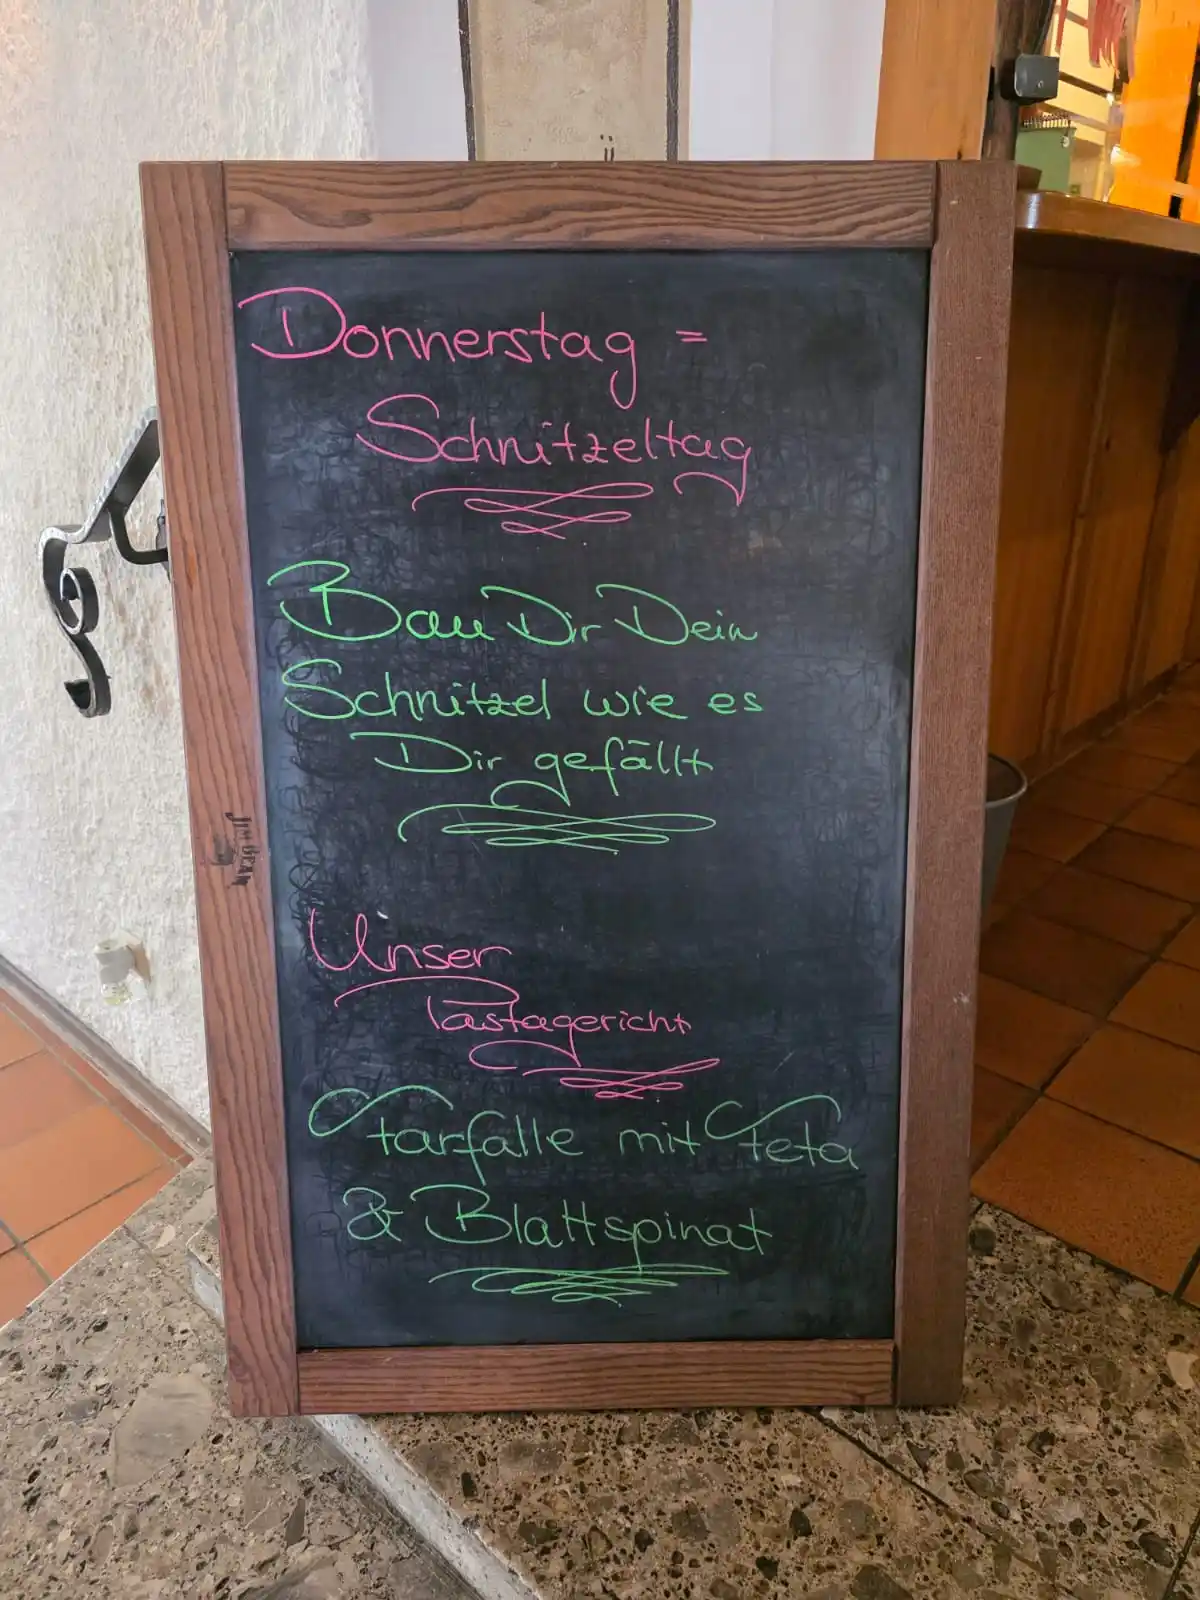 Donnerstag =
Schnitzeltag
Bau Dir Dein
Schnitzel wie es
Dir gefällt
Unser
Pastagericht
Farfalle mit Feta
& Blattspinat
JIM BEAM